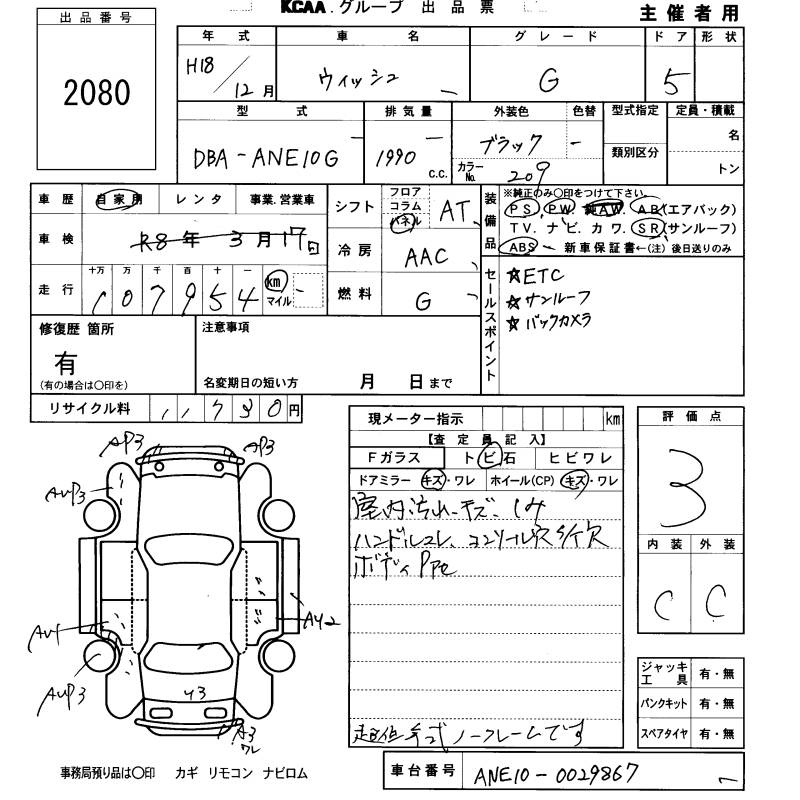 KCAA.グループ 出品票
主催者用
出品番号
2080
年式 車名 グレード ドア 形状
H18/12月 ウィッシュ G 5
型式 排気量 外装色 色替 型式指定 定員・積載
DBA-ANE10G 1990 c.c. ブラック - 名
カラーNo. 209 類別区分 トン
車歴 自家用 レンタ 事業.営業車
車検 R8年3月17日
走行 十万 万 千 百 十 一
107954 km マイル
シフト フロア コラム パネル AT
冷房 AAC
燃料 G
装備品 ※純正のみ○印をつけて下さい。
PS. PW. 純AW. AB(エアバック)
TV. ナビ. カワ. SR(サンルーフ)
ABS 新車保証書←(注) 後日送りのみ
セールスポイント
☆ETC
☆サンルーフ
☆バックカメラ
修復歴 箇所
有
(有の場合は○印を)
注意事項
名変期日の短い方 月 日まで
リサイクル料 11730円
現メーター指示 km
【査定員記入】
Fガラス トビ石 ヒビワレ
ドアミラー キズ・ワレ ホイール(CP) キズ・ワレ
室内汚れ、キズ、しみ
ハンドルコレ、コンソール
ボディ
ノーフレームです
評価点
3
内装 外装
C C
ジャッキ工具 有・無
パンクキット 有・無
スペアタイヤ 有・無
AP3 AP3
AUP3
AU4
AUP3
AY2
Y3
A3
ワレ
事務局預り品は○印 カギ リモコン ナビロム
車台番号 ANE10-0029867